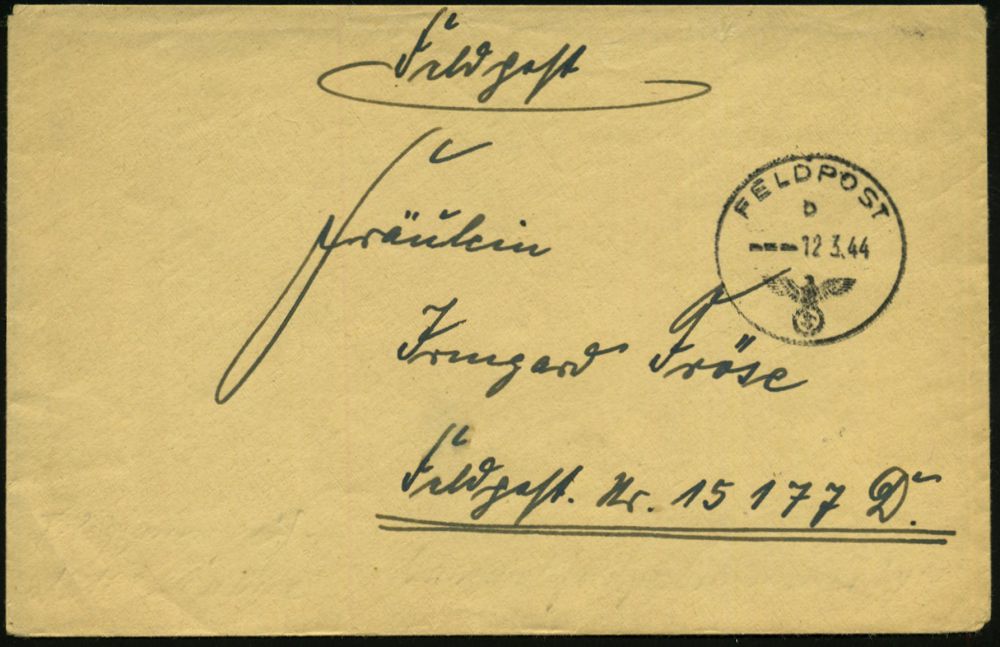 Feldpost
Fräulein
FELDPOST
b
12.3.44
Irmgard Fröse
Feldpost. Nr. 15 177 D.